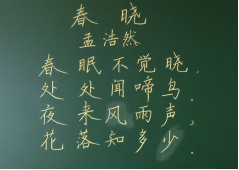 春晓
孟浩然
春眠不觉晓,
处处闻啼鸟,
夜来风雨声,
花落知多少.